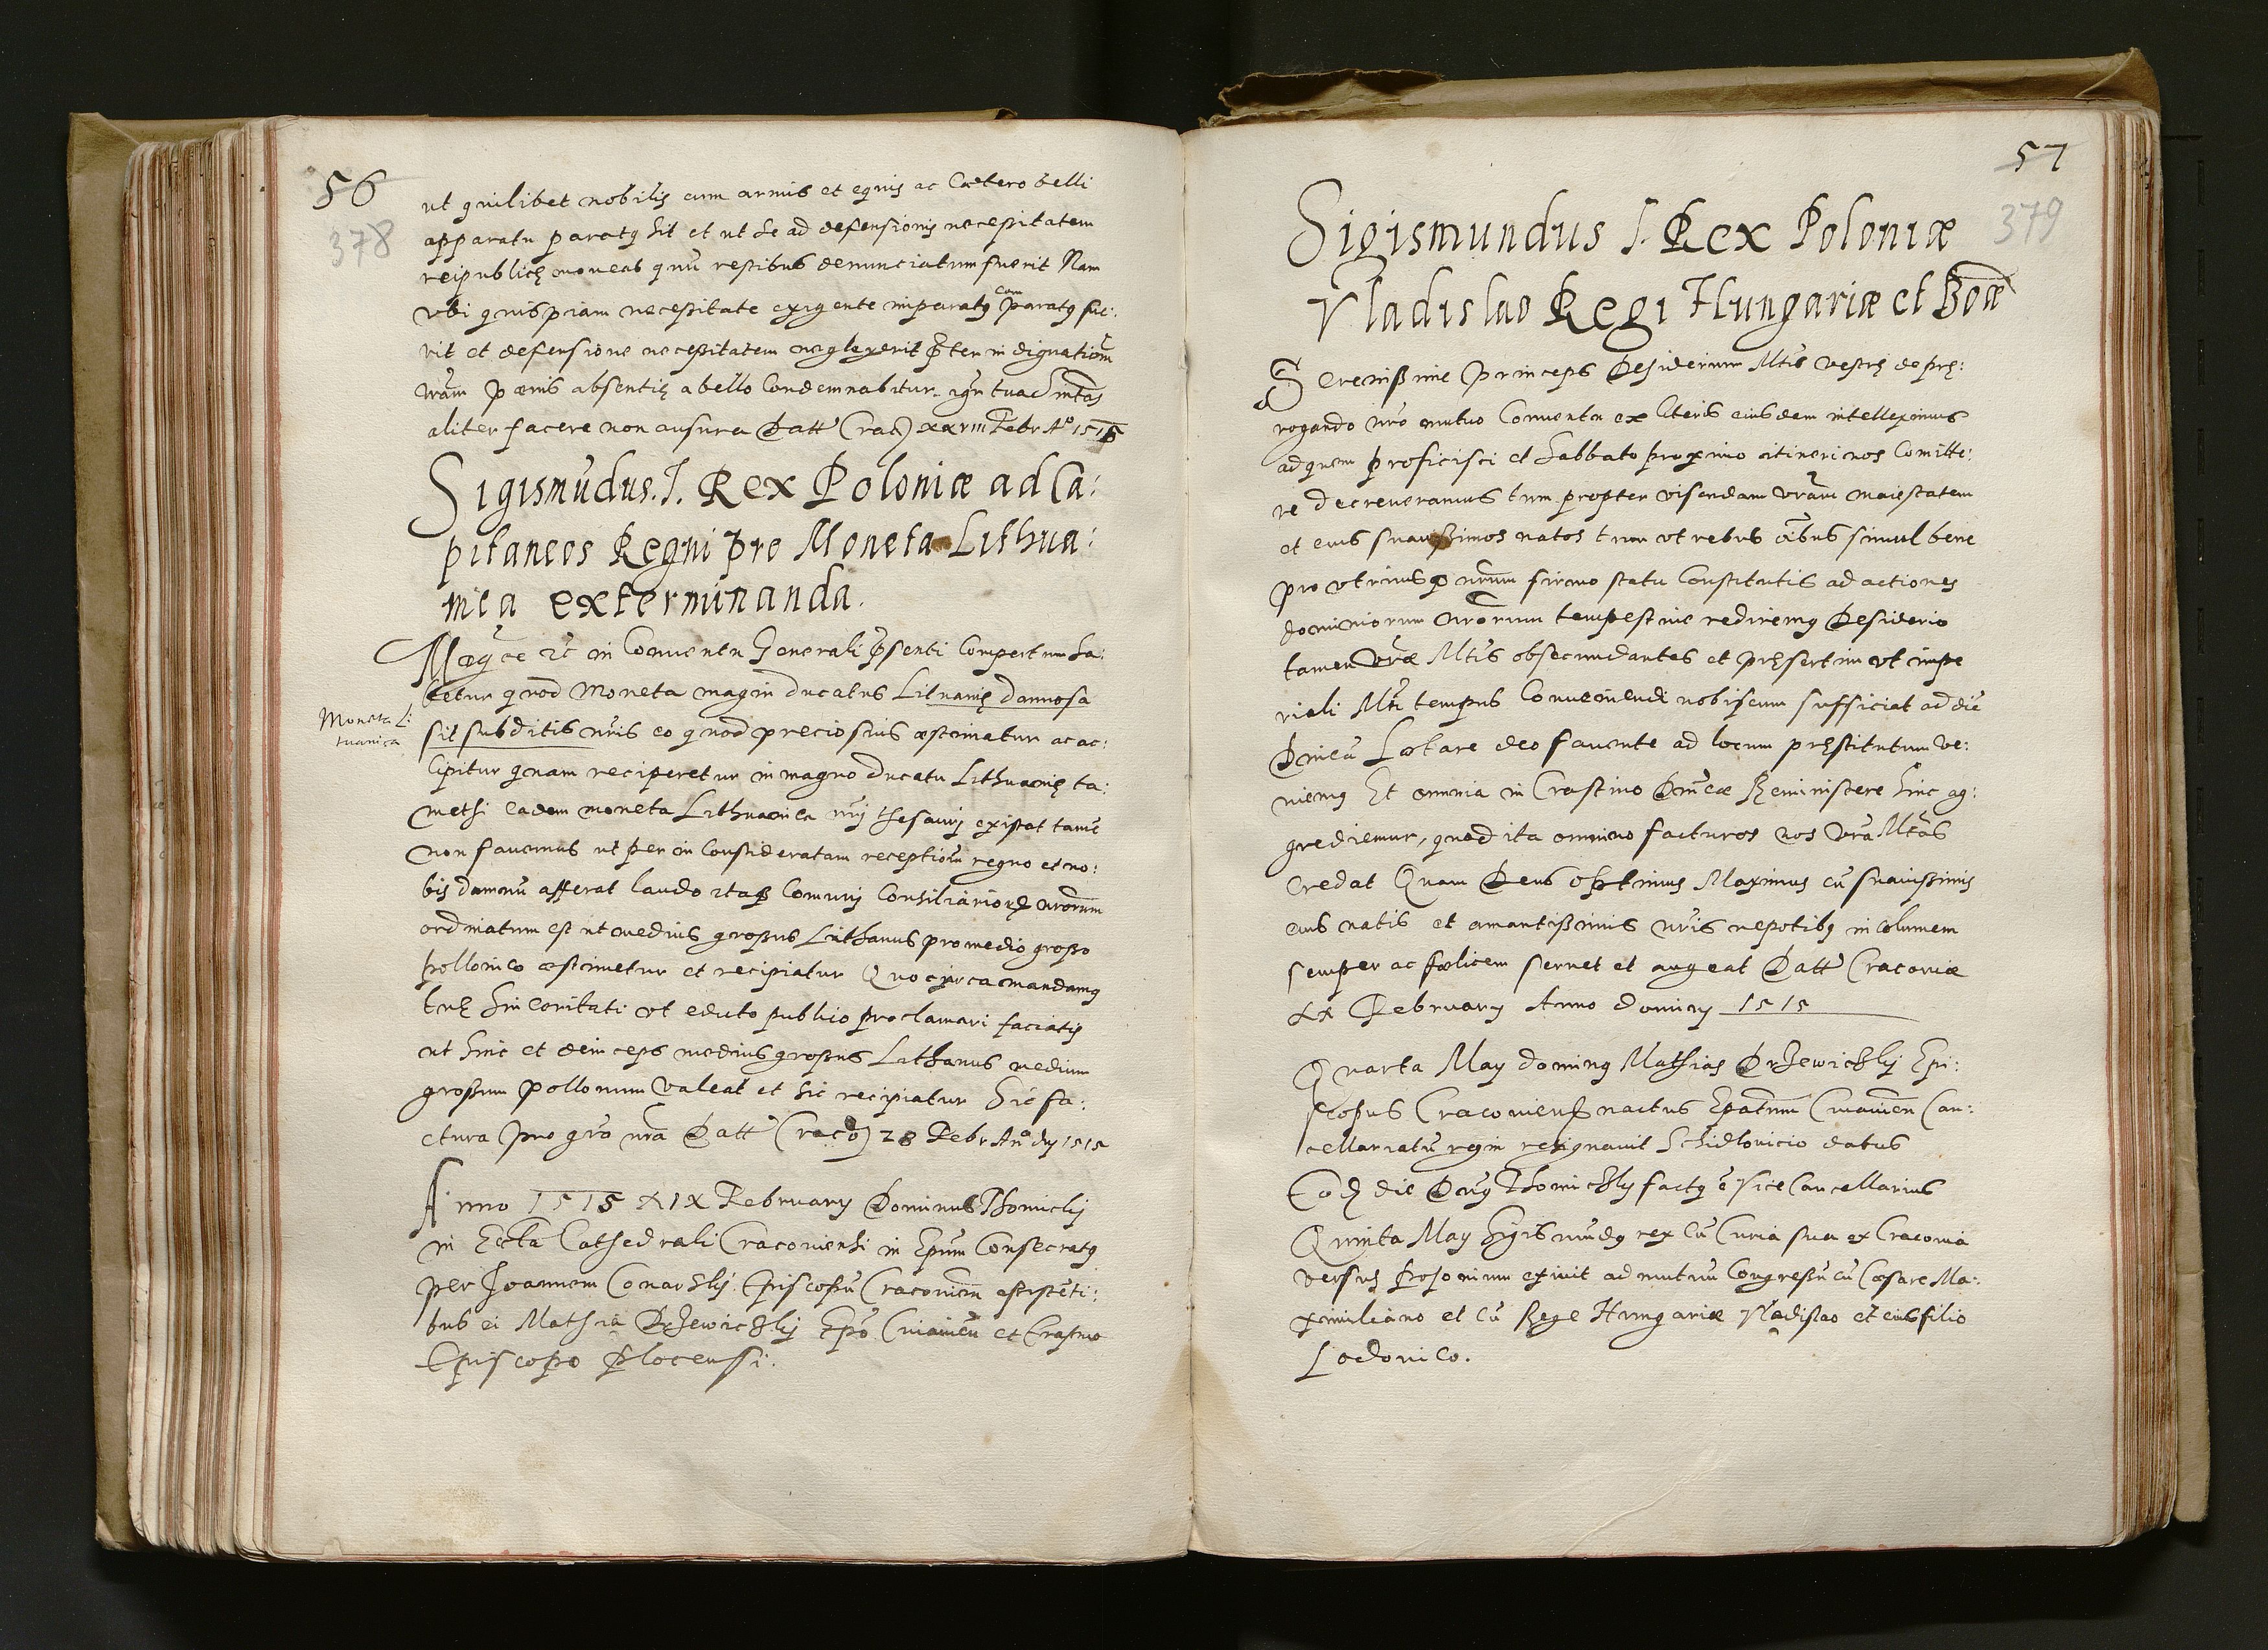 56
378
ut quilibet nobilis cum armis et equis ac Cætero belli
apparatu paratq sit et ut se ad defensionis necessitatem
reipublicę moveat quū restibus denunciatum fuerit Nam
ubi quispiam necessitate exigente imparatq Comparatq fue:
rit et defensione necessitatem neglexerit p̃ter indignationem
nr̃am pœnis absentię a bello Condemnabitur. igr̃ tua Sinctas
aliter facere non ausura Datt Crac) xxviii Febr A° 1515
Sigismūdus. I. Rex Poloniæ ad Ca:
pitaneos Regni pro Moneta Lithua:
nica exterminanda.
Magce etc in Conventu Generali p̃senti Compertum ha:
betur quod Moneta magni ducatus Lituanię damnosa
Moneta Li:
tuanica
sit subditis nr̃is eo quod preciosius æstimatur ac ac:
cipitur quam reciperetur in magno ducatu Lithuanię ta:
methi eadem moneta Lithuanica nr̃j thesaurj existat tamē
non favemus ut per in Consideratam receptiom̃ regno et no:
bis damnū afferat laudo itaqз Comunj Consiliarioꝝ nrorum
ordinatum est ut medius grossus Lithanus pro medio grosso
pollonico æstimetur et recipiatur Quocirca mandamq
tuę Sinceritati ut edicto publico proclamari faciatis
ut hinc et deinceps medius grossus Lithanus medium
grossum pollonum valeat et sic recipiatur Sic fa:
ctura pro grã nr̃a Datt Craco) 28 Febr Ano dnj 1515
Anno 1515 XIX February Dominus Thomiclij
in Eccla Cathedrali Cracoviensi in Epum Consecratq
per Joannem Conarskij Episcopū Cracovien̄ assistēti:
bus ei Mathia Drzewickij Epo Cuiavien̄ et Erasmo
Episcopo Plocensi.
57
379
Sigismundus I. Rex Poloniæ
Vladislao Regi Hungariæ et Boæ
Serenissime Princeps Desiderium Mtis vestrę de prę:
rogando nr̃o mutuo Conventu ex literis eiusdem intelleximus
ad quem proficisci et sabbato proximo itineri nos Comitte:
re decreveramus tum propter visendam vr̃am maiestatem
et eius suavissimos natos tum ut rebus oībus simul bene
pro utriusqз nr̃um firmo statu Constitutis ad actiones
dominiorum nrorum tempestive rediremq Desiderio
tamen vr̃æ Mtis obsecundantes et pręsertim ut impe
riali Mti tempus Conveniendi nobiscum sufficiat ad diē
Dnicū Lætare deo favente ad locum pręstitutum ve:
niemq Et omnia in Crastino Dnicæ Reminiscere hinc ag:
grediemur, quod ita omnino facturos nos vr̃a Mtas
Credat Quam Deus optimus Maximus cū suavissimis
eius natis et amantissimis nr̃is nepotibq incolumem
semper ac fœlicem servet et augeat Datt Cracoviæ
xx February Anno dominj 1515
Quarta May dominq Mathias Drzewickij Epi:
scopus Cracovieñ nactus Epatum Cuiavien̄ Can:
cellariatū regni resignavit Schidlovicio datus
Eoꝺ die Dnq Thomickij factq ē Vice Cancellarius
Quinta May Sigismūdq rex cū Curia sua ex Cracovia
versus Posonium exivit ad mutuū Congressū cū Cæsare Ma:
ximiliano et cū Rege Hungariæ Vladislao et eius filio
Lodovico.